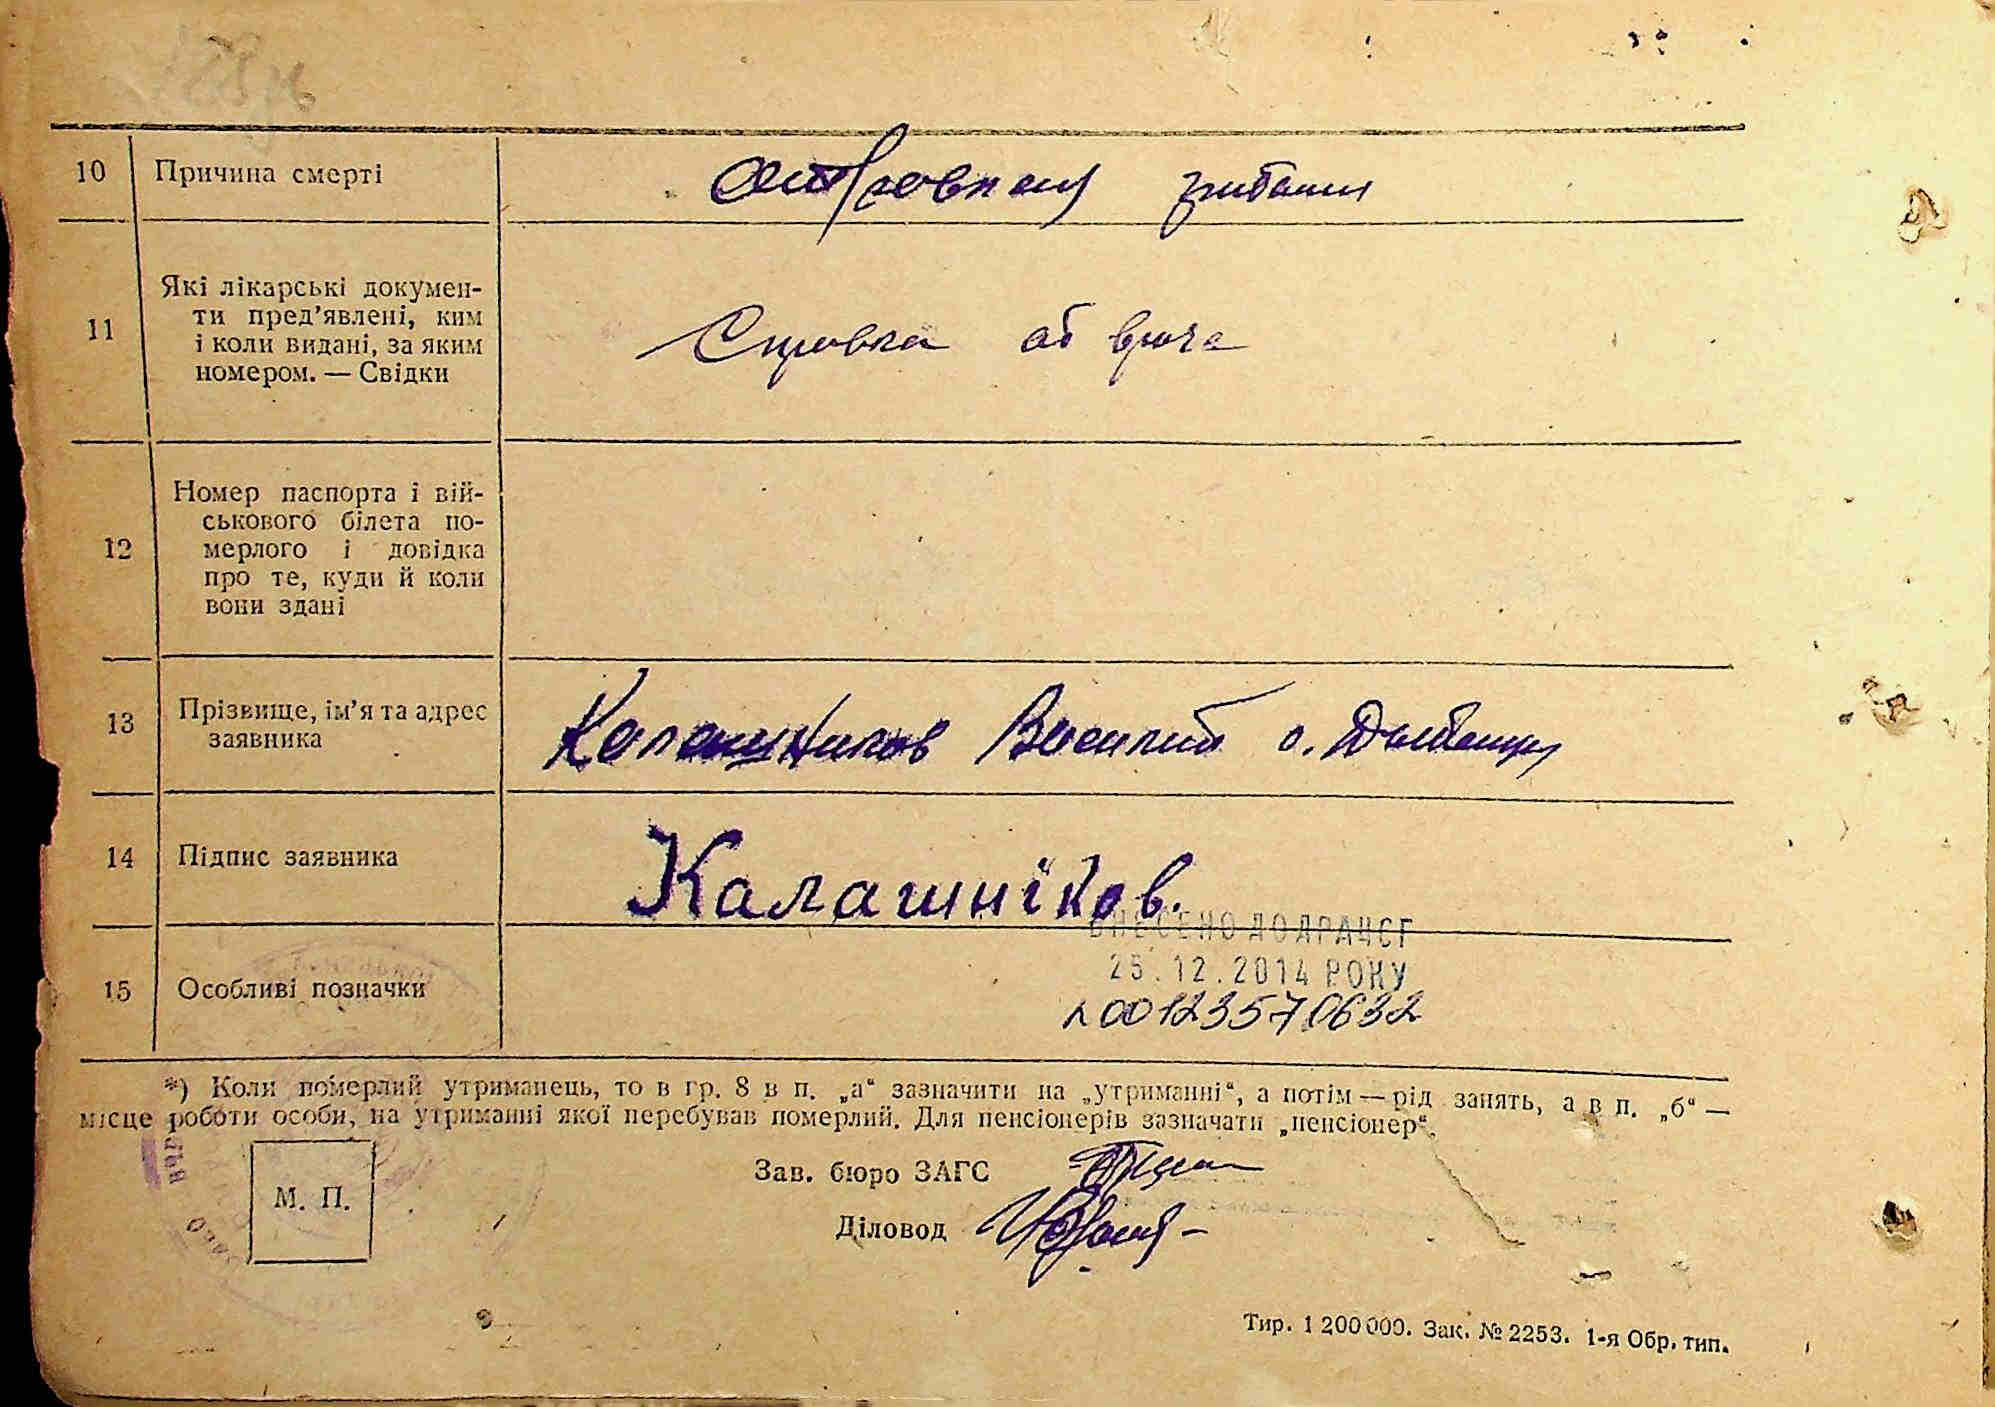 10 Причина смерті
11 Які лікарські докумен-
ти пред’явлені, ким
і коли видані, за яким
номером. — Свідки
Справка от врача
12 Номер паспорта і вій-
ськового білета по-
мерлого і довідка
про те, куди й коли
вони здані
13 Прізвище, ім’я та адрес
заявника
Калашников Василий с.
14 Підпис заявника
Калашніков.
ВНЕСЕНО ДО ДРАЦСГ
15 Особливі позначки
25.12.2014 РОКУ
00123570632
*) Коли померлий утриманець, то в гр. 8 в п. „а“ зазначити на „утриманні“, а потім — рід занять, а в п. „б“ —
місце роботи особи, на утриманні якої перебував померлий. Для пенсіонерів зазначати „пенсіонер“.
М. П.
Зав. бюро ЗАГС
Діловод
Тир. 1 200 000. Зак. № 2253. 1-я Обр. тип.